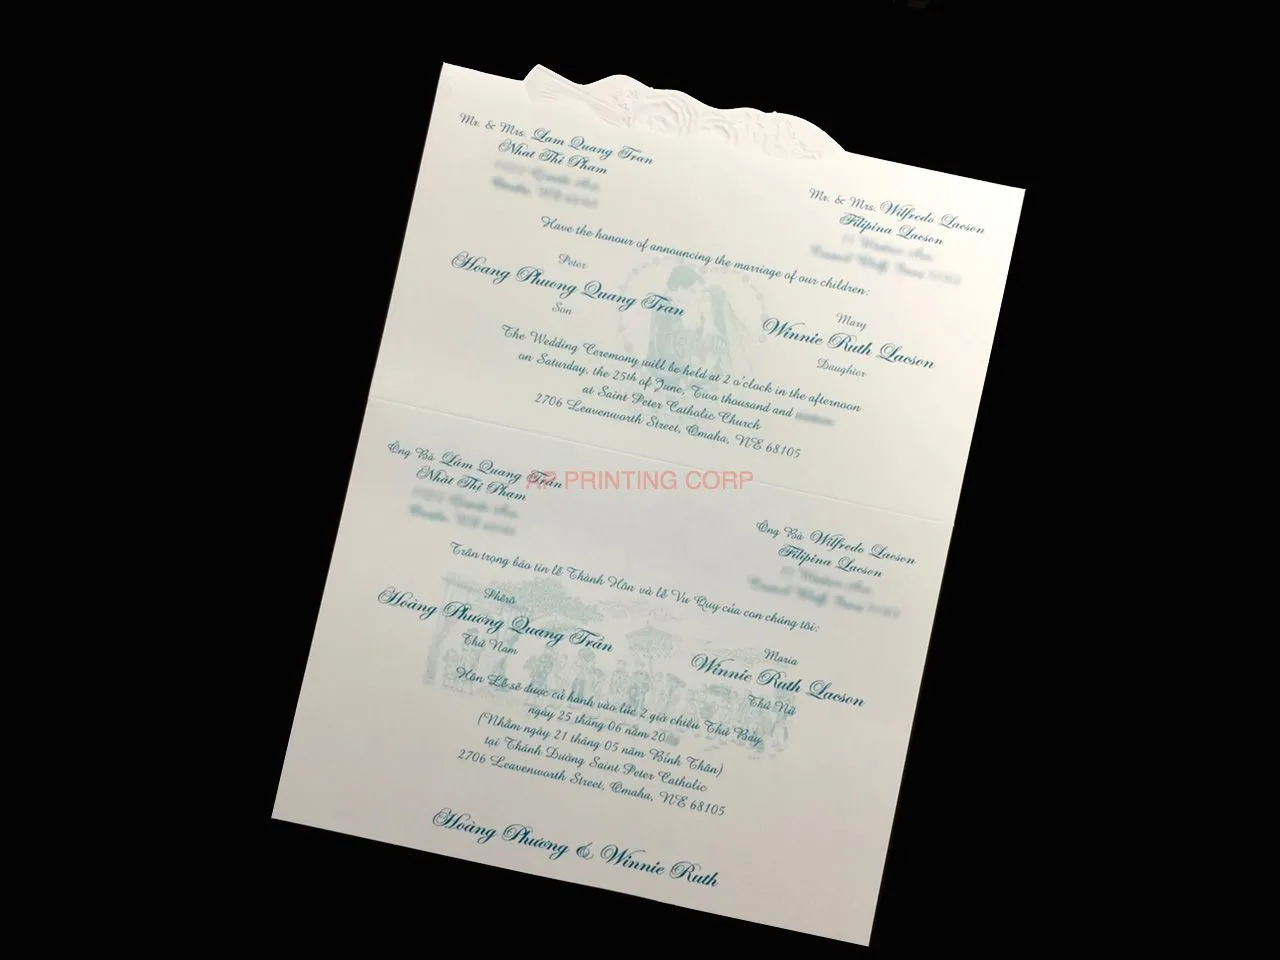 Mr. & Mrs. Lam Quang Tran
Nhat Thi Pham
Mr. & Mrs. Wilfredo Lacson
Filipina Lacson
Have the honour of announcing the marriage of our children:
Peter
Hoang Phuong Quang Tran
Son
Mary
Winnie Ruth Lacson
Daughter
The Wedding Ceremony will be held at 2 o'clock in the afternoon
on Saturday, the 25th of June, Two thousand and
at Saint Peter Catholic Church
2706 Leavenworth Street, Omaha, NE 68105
AP PRINTING CORP
Ông Bà Lâm Quang Trần
Nhật Thị Phạm
Ông Bà Wilfredo Lacson
Filipina Lacson
Trân trọng báo tin lễ Thành Hôn và lễ Vu Quy của con chúng tôi:
Phêrô
Hoàng Phương Quang Trần
Thứ Nam
Maria
Winnie Ruth Lacson
Thứ Nữ
Hôn Lễ sẽ được cử hành vào lúc 2 giờ chiều Thứ Bảy
ngày 25 tháng 06 năm 20
(Nhằm ngày 21 tháng 05 năm Bính Thân)
tại Thánh Đường Saint Peter Catholic
2706 Leavenworth Street, Omaha, NE 68105
Hoàng Phương & Winnie Ruth